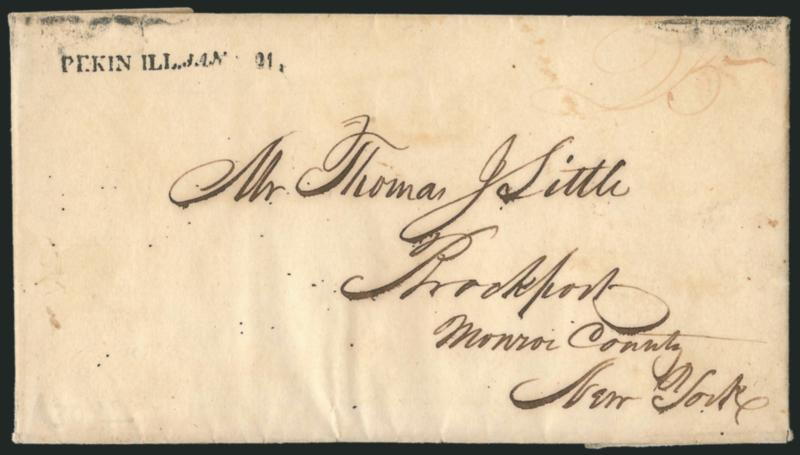 PEKIN ILL. JAN 21,
25
Mr Thomas J Little
Brockport
Monroe County
New York